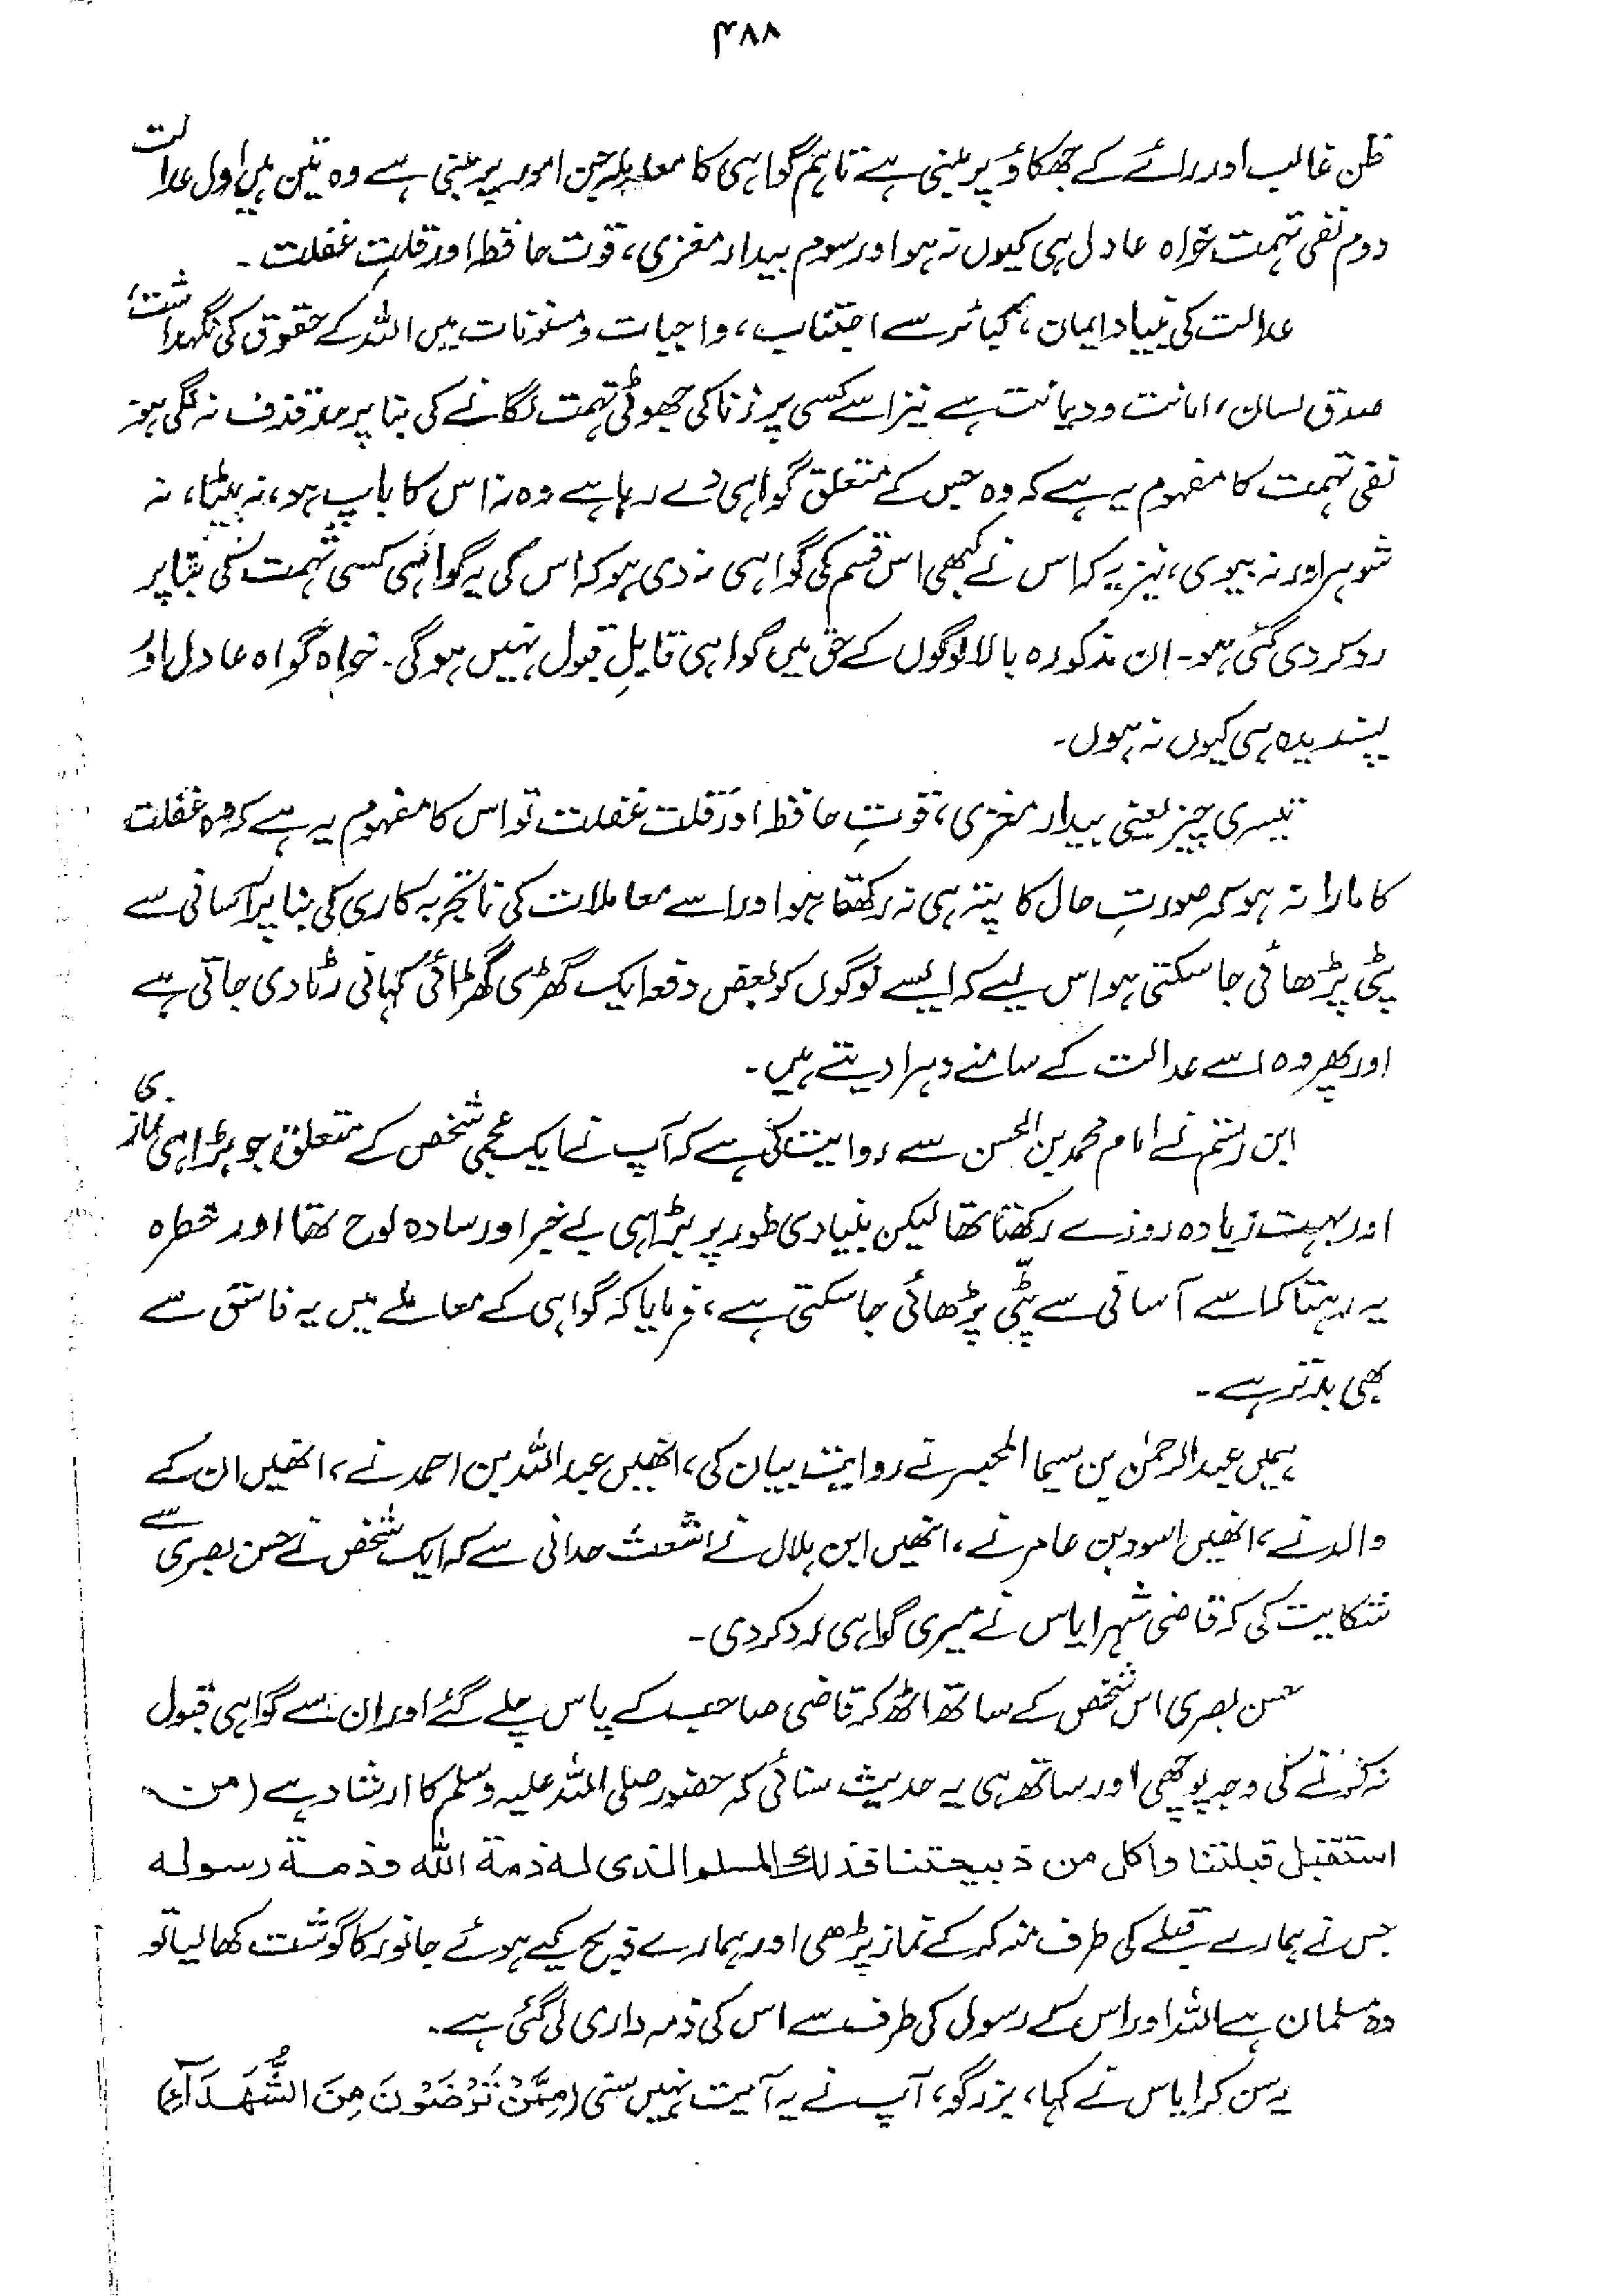 ۴۸۸
ظن غالب اور رائے کے جھکاؤ پر مبنی ہے تاہم گواہی کا معاملہ جن امور پر مبنی ہے وہ تین ہیں اول عدالت
دوم نفی تہمت خواہ عادل ہی کیوں نہ ہو اور سوم بیدار مغزی، قوت حافظہ اور قلتِ غفلت۔
عدالت کی بنیاد ایمان، کبائر سے اجتناب، واجبات و مسنونات میں اللہ کے حقوق کی نگہداشت،
صدق لسان، امانت و دیانت ہے نیز اسے کسی پر زنا کی جھوٹی تہمت لگانے کی بنا پر حد قذف نہ لگی ہو۔
نفی تہمت کا مفہوم یہ ہے کہ وہ جس کے متعلق گواہی دے رہا ہے وہ نہ اس کا باپ ہو، نہ بیٹا، نہ
شوہر اور نہ بیوی، نیز یہ کہ اس نے کبھی اس قسم کی گواہی نہ دی ہو کہ اس کی یہ گواہی کسی تہمت کی بنا پر
رد کر دی گئی ہو۔ ان مذکورہ بالا لوگوں کے حق میں گواہی قابلِ قبول نہیں ہوگی۔ خواہ گواہ عادل اور
پسندیدہ ہی کیوں نہ ہوں۔
تیسری چیز یعنی بیدار مغزی، قوتِ حافظہ اور قلت غفلت تو اس کا مفہوم یہ ہے کہ وہ غفلت
کا مارا نہ ہو کہ صورتِ حال کا پتہ ہی نہ رکھتا ہو اور اسے معاملات کی ناتجربہ کاری کی بنا پر آسانی سے
پٹی پڑھائی جا سکتی ہو اس لیے کہ ایسے لوگوں کو بعض دفعہ ایک گھڑی گھڑائی کہانی رٹا دی جاتی ہے
اور پھر وہ اسے عدالت کے سامنے دہرا دیتے ہیں۔
ابن رستم نے امام محمد بن الحسن سے روایت کی ہے کہ آپ نے ایک عجمی شخص کے متعلق جو بڑا ہی نمازی
اور بہت زیادہ روزے رکھتا تھا لیکن بنیادی طور پر بڑا ہی بے خبر اور سادہ لوح تھا اور خطرہ
یہ رہتا کہ اسے آسانی سے پٹّی پڑھائی جا سکتی ہے، فرمایا کہ گواہی کے معاملے میں یہ فاسق سے
بھی بدتر ہے۔
ہمیں عبد الرحمٰن بن سیما المجبر نے روایت بیان کی، انھیں عبد اللہ بن احمد نے، انھیں ان کے
والد نے، انھیں اسود بن عامر نے، انھیں ابن ہلال نے اشعث حدانی سے کہ ایک شخص نے حسن بصری سے
شکایت کی کہ قاضی شہر ایاس نے میری گواہی رد کر دی۔
حسن بصری اس شخص کے ساتھ اٹھ کر قاضی صاحب کے پاس چلے گئے اور ان سے گواہی قبول
نہ کرنے کی وجہ پوچھی اور ساتھ ہی یہ حدیث سنائی کہ حضور صلی اللہ علیہ وسلم کا ارشاد ہے (من
استقبل قبلتنا واکل من ذبیحتنا فذلک المسلم الذی لہ ذمۃ اللہ وذمۃ رسولہ
جس نے ہمارے قبلے کی طرف منہ کر کے نماز پڑھی اور ہمارے ذبح کیے ہوئے جانور کا گوشت کھا لیا تو
وہ مسلمان ہے اللہ اور اس کے رسول کی طرف سے اس کی ذمہ داری لی گئی ہے۔
یہ سن کر ایاس نے کہا، بزرگو، آپ نے یہ آیت نہیں سنی (مِمَّنْ تَرْضَوْنَ مِنَ الشُّهَدَآءِ)